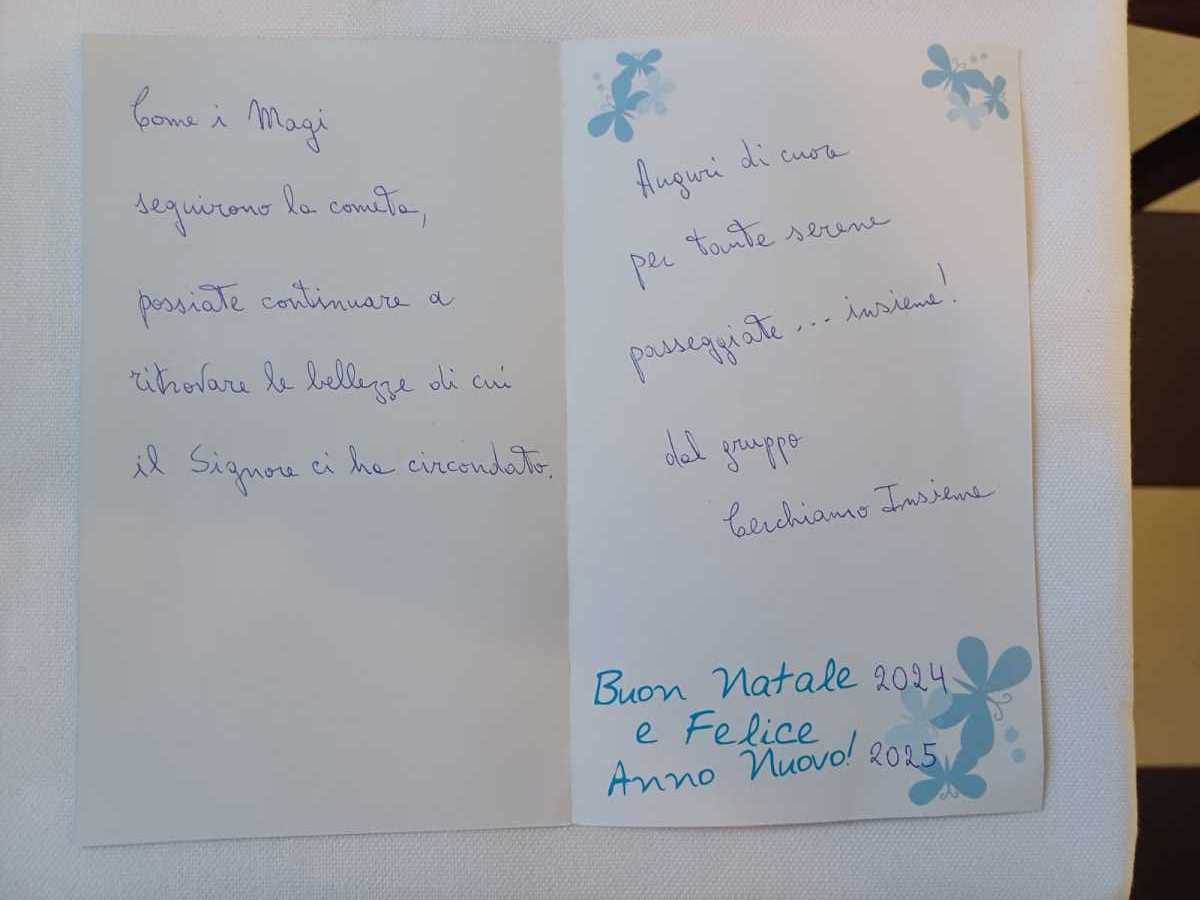 Come i Magi
seguirono la cometa,
possiate continuare a
ritrovare le bellezze di cui
il Signore ci ha circondato.
Auguri di cuore
per tante serene
passeggiate ... insieme!
dal gruppo
Cerchiamo Insieme
Buon Natale 2024
e Felice
Anno Nuovo! 2025